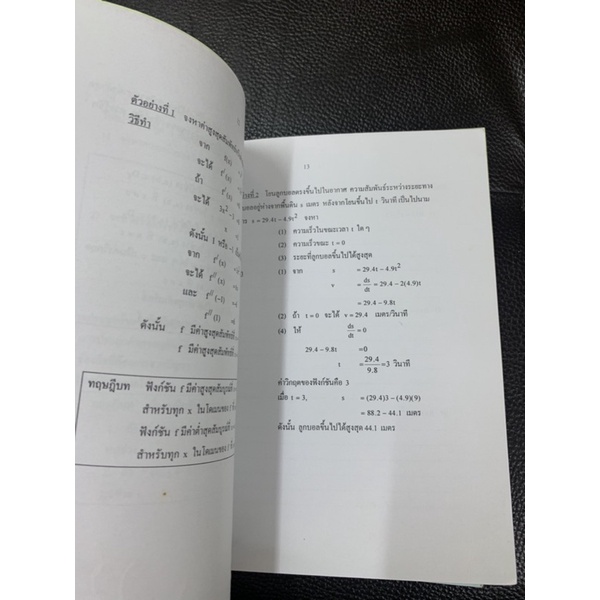 ตัวอย่างที่ 1 จงหาค่าสูงสุดสัมพัทธ์
วิธีทำ
จาก f(x)
จะได้ f′(x)
ถ้า f′(x)
จะได้ 3x² − 3
x
ดังนั้น 1 หรือ −1
จาก f′(x)
จะได้ f″(x)
และ f″(−1)
f″(1)
ดังนั้น f มีค่าสูงสุดสัมพัทธ์ที่
f มีค่าสูงสุดสัมพัทธ์ที่
ทฤษฎีบท ฟังก์ชัน f มีค่าสูงสุดสัมบูรณ์ที่
สำหรับทุก x ในโดเมนของ f
ฟังก์ชัน f มีค่าต่ำสุดสัมบูรณ์ที่
สำหรับทุก x ในโดเมนของ f
15
โยนลูกบอลตรงขึ้นไปในอากาศ ความสัมพันธ์ระหว่างระยะทาง
อยู่ห่างจากพื้นดิน s เมตร หลังจากโยนขึ้นไป t วินาที เป็นไปตาม
s = 29.4t − 4.9t² จงหา
(1) ความเร็วในขณะเวลา t ใด ๆ
(2) ความเร็วขณะ t = 0
(3) ระยะที่ลูกบอลขึ้นไปได้สูงสุด
(1) จาก s = 29.4t − 4.9t²
v = ds/dt = 29.4 − 2(4.9)t
= 29.4 − 9.8t
(2) ถ้า t = 0 จะได้ v = 29.4 เมตร/วินาที
(4) ให้ ds/dt = 0
29.4 − 9.8t = 0
t = 29.4/9.8 = 3 วินาที
ค่าวิกฤตของฟังก์ชันคือ 3
เมื่อ t = 3, s = (29.4)3 − (4.9)(9)
= 88.2 − 44.1 เมตร
ดังนั้น ลูกบอลขึ้นไปได้สูงสุด 44.1 เมตร